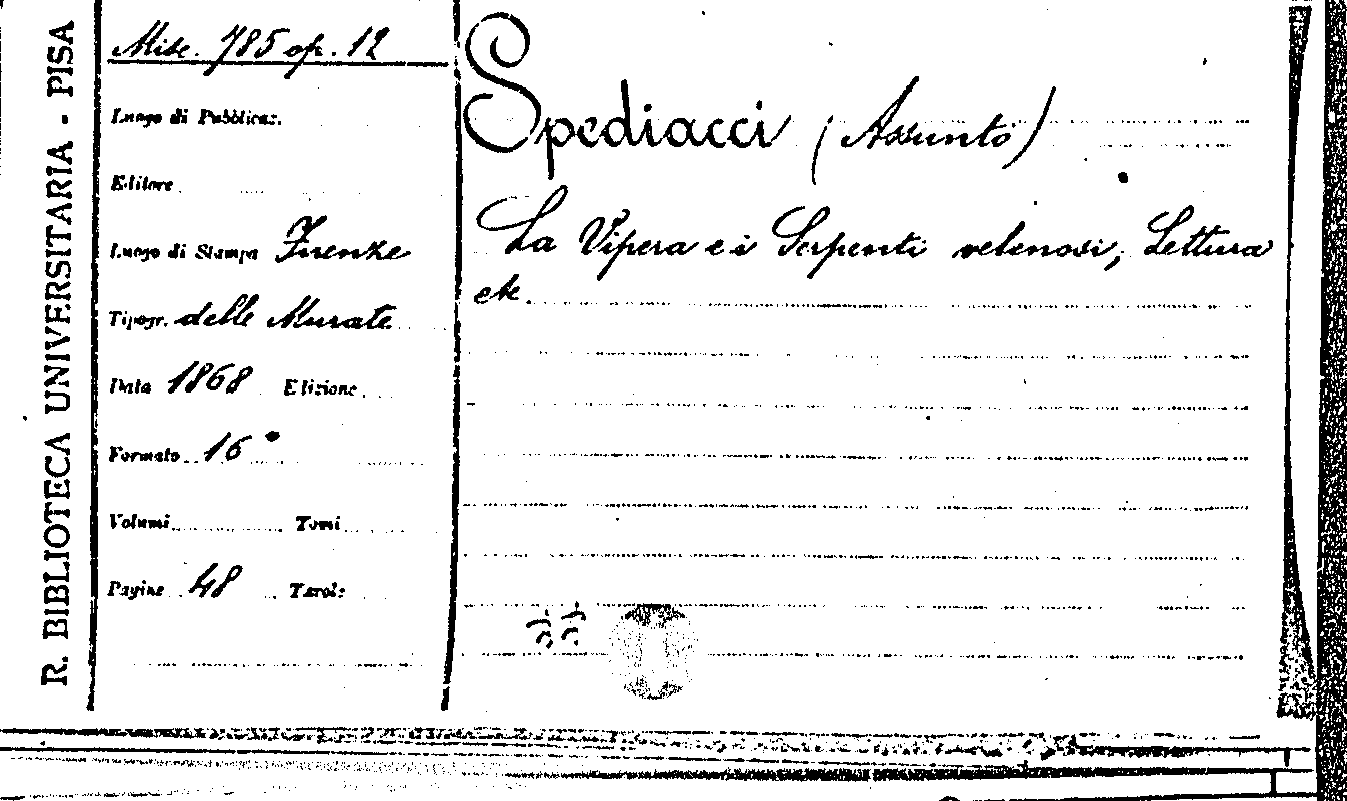 R. BIBLIOTECA UNIVERSITARIA - PISA
Misc. 785 op. 12
Luogo di Pubblicaz.
Editore
Luogo di Stampa Firenze
Tipogr. delle Murate
Data 1868 Edizione
Formato 16°
Volumi Tomi
Pagine 48 Tavole
Spediacci (Assunto)
La Vipera e i Serpenti velenosi, Lettura
etc